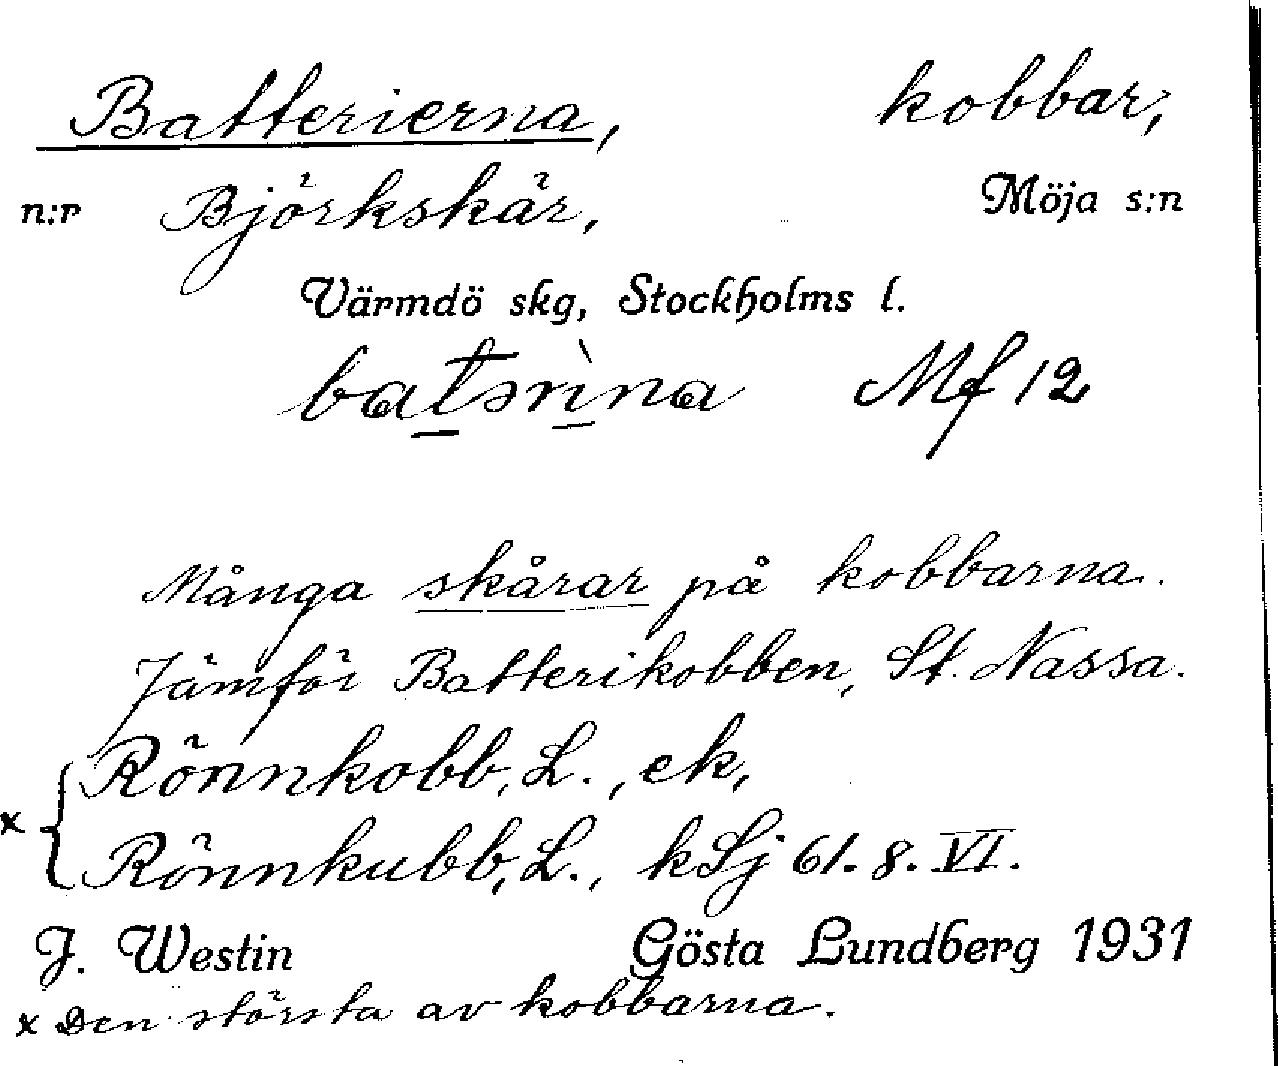 Batterierna, kobbar,
n:r Björkskär, Möja s:n
Värmdö skg, Stockholms l.
batsrìna Mf 12
Många skårar på kobbarna.
Jämför Batterikobben, St. Nassa.
Rönnkobb, L., ek,
x { Rönnkubb, L., kSj 61. 8. VI.
J. Westin Gösta Lundberg 1931
x Den största av kobbarna.